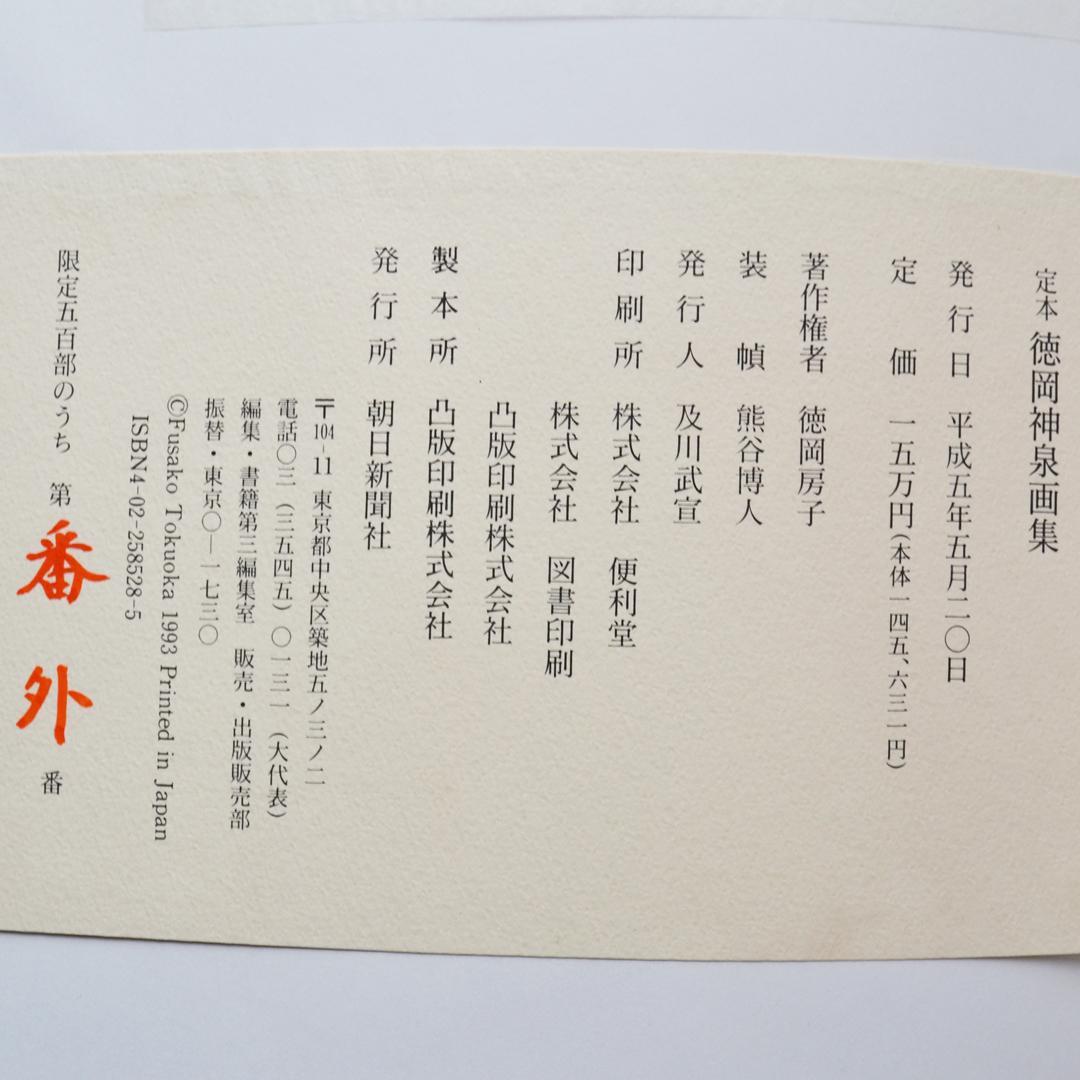 定本 徳岡神泉画集
発行日 平成五年五月二〇日
定価 一五万円(本体一四五、六三一円)
著作権者 徳岡房子
装幀 熊谷博人
発行人 及川武宣
印刷所 株式会社 便利堂
株式会社 図書印刷
凸版印刷株式会社
製本所 凸版印刷株式会社
発行所 朝日新聞社
〒104-11 東京都中央区築地五ノ三ノ二
電話〇三(三五四五)〇一三一(大代表)
編集・書籍第三編集室 販売・出版販売部
振替・東京〇―一七三〇
©Fusako Tokuoka 1993 Printed in Japan
ISBN4-02-258528-5
限定五百部のうち 第 番外 番